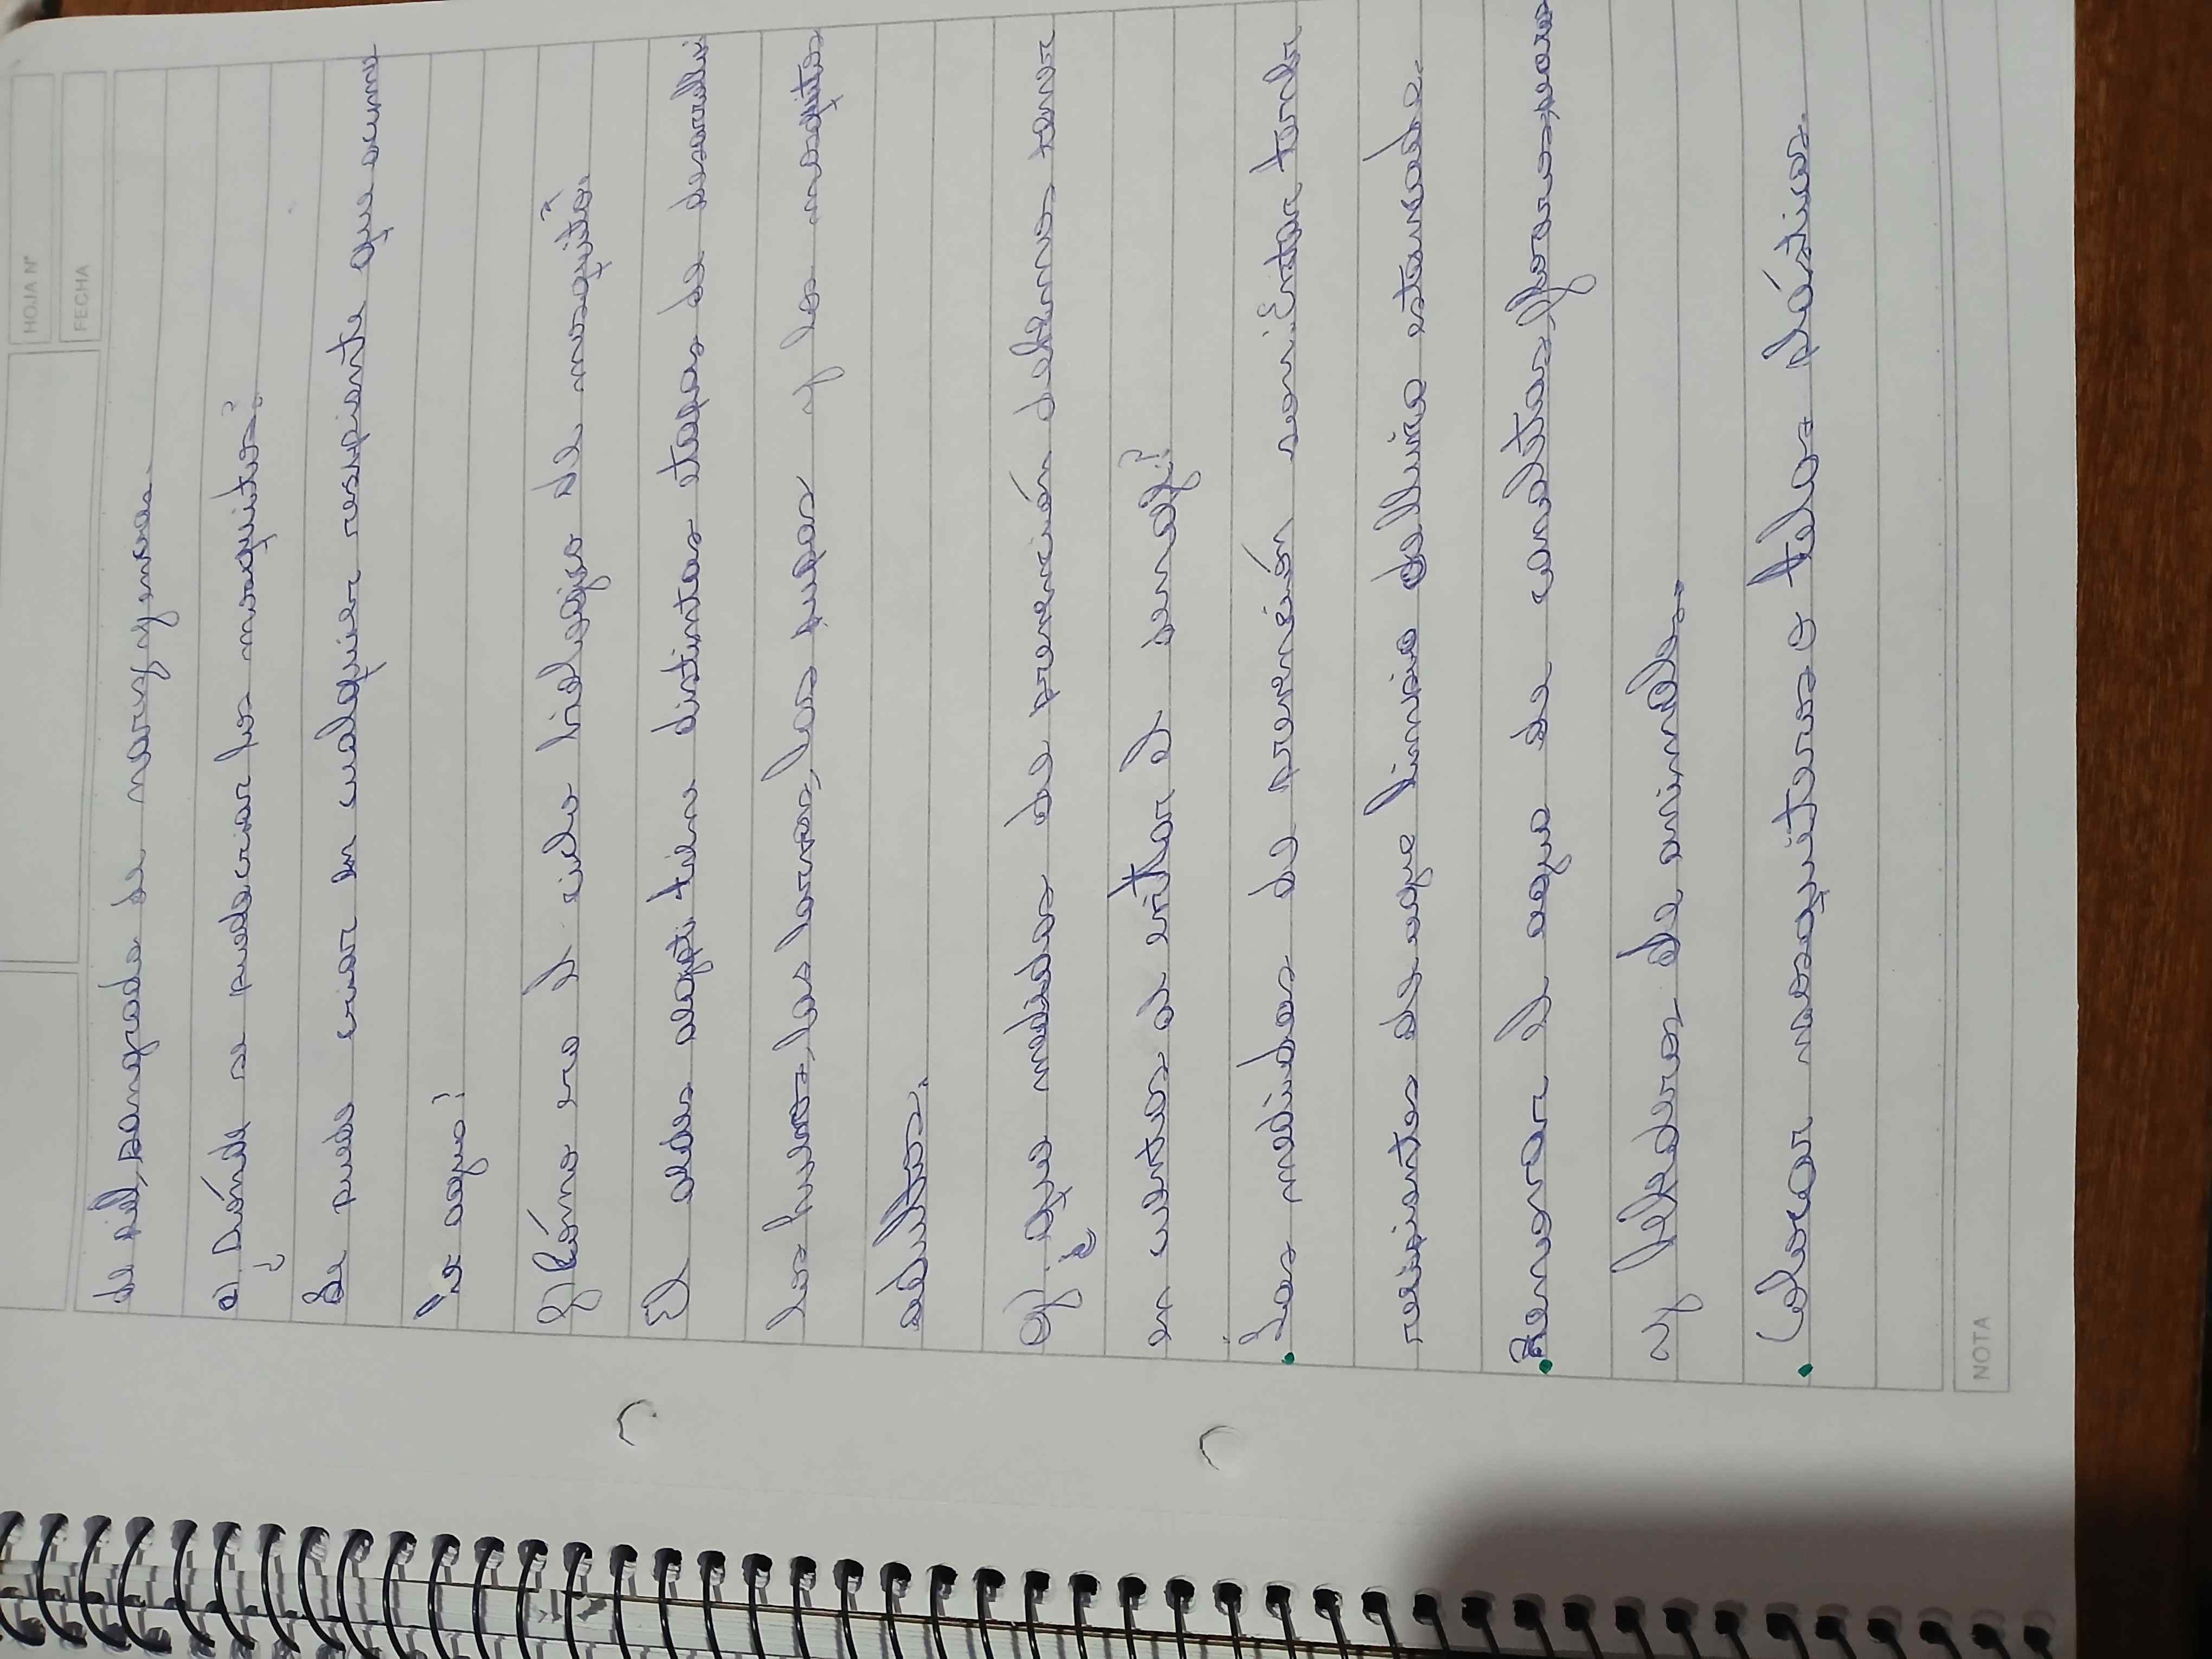 HOJA N°
FECHA
de piel, sangrado de nariz y encias.
e). ¿Dónde se puede criar los mosquitos?
Se puede criar en cualquier resipiente que acumu
le agua!
f) Cómo era el ciclo biológico de mosquito?
El aedes aegpti tiene distintas etapas de desarrollo
los huevos, las larvas, las pupas y los mosquitos
adultos.
g). ¿Que medidas de prevención debemos tener
en cuentas al evitar el dengue?
• Las medidas de prevención son: Evitar tener
resipientes de agua limpia o lluvia estancada.
• Renovar el agua de canaletas, floreros, peceras
y bebederos de animales.
• Colocar mosquiteros o telas plásticas.
NOTA